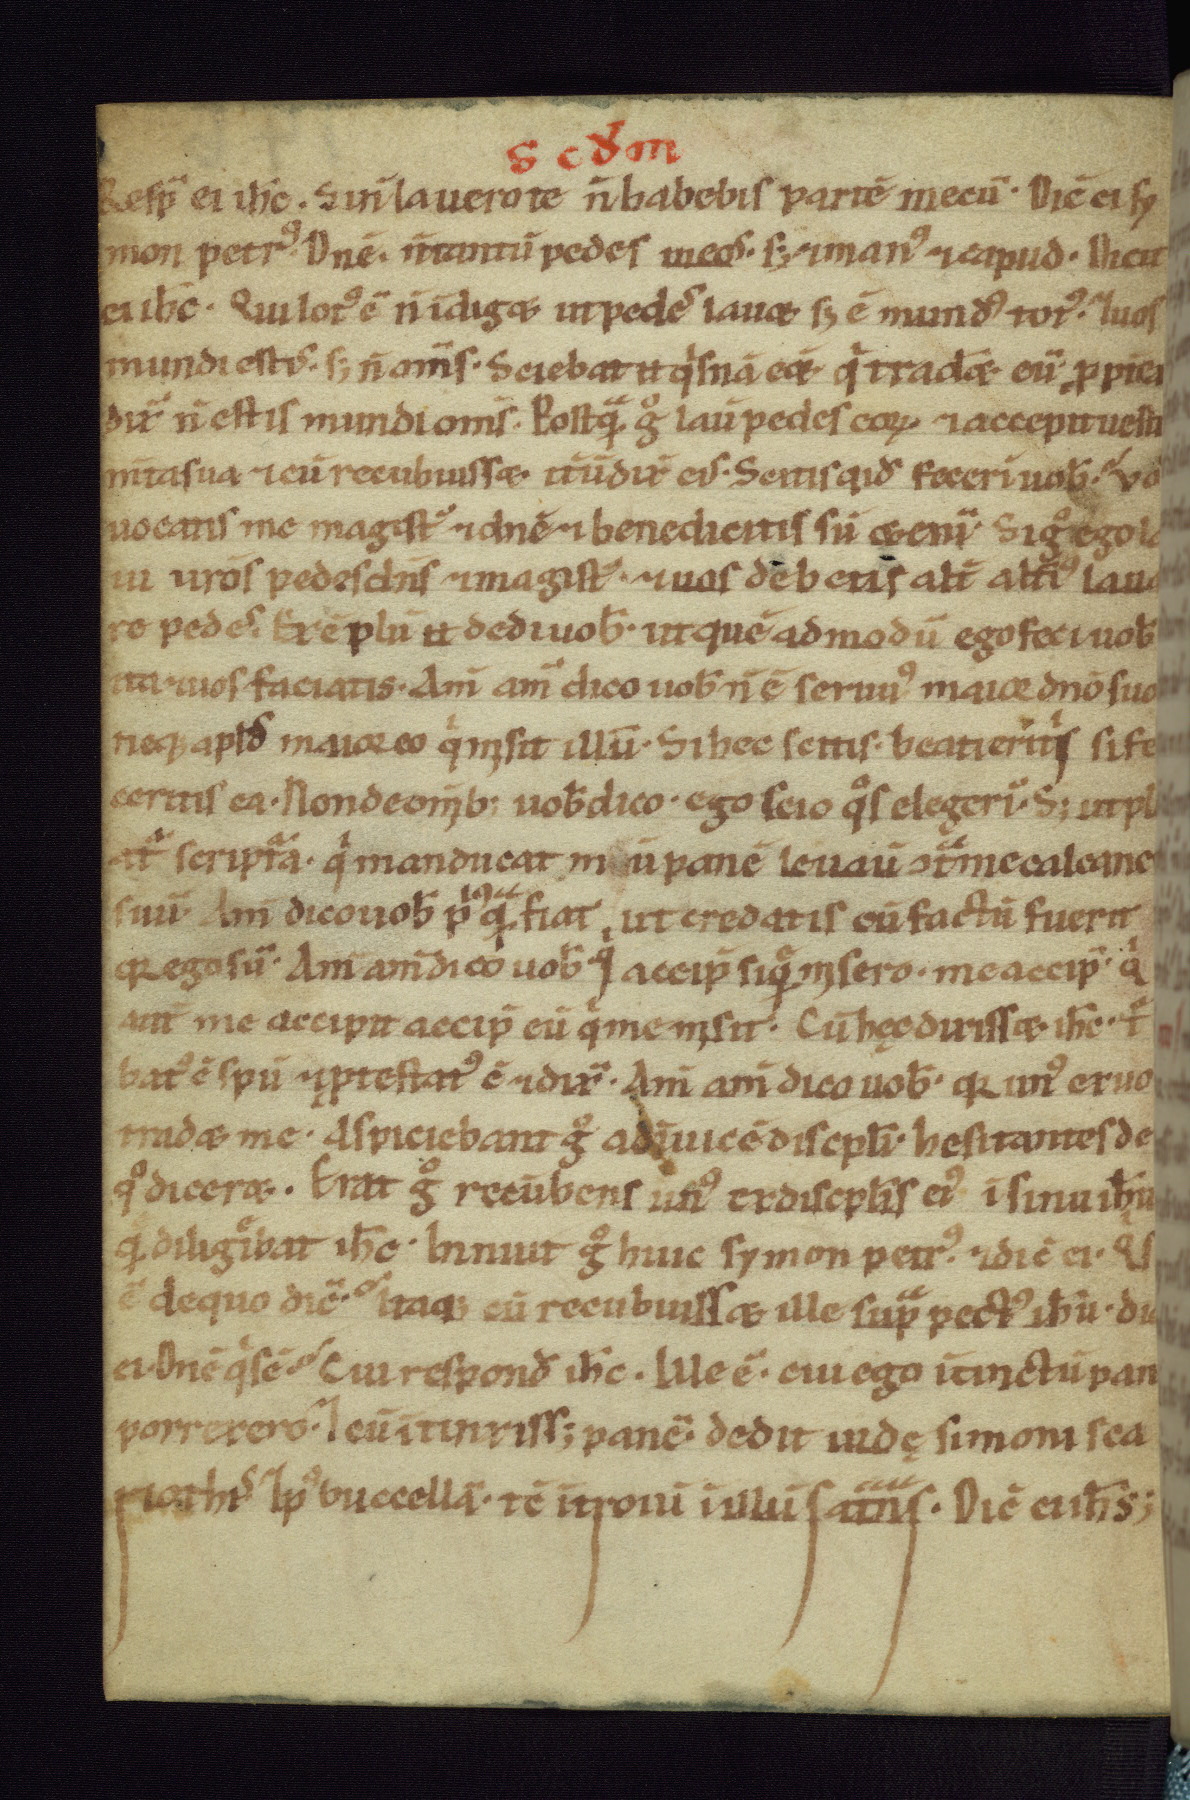 scdm
Resp̄ ei ih̄c. Si n̄ lauero te n̄ habebis partē mecū. Dic̄ ei sy
mon petrꝰ. Dnē. n̄ tantū pedes meos. sꝫ ⁊ manꝰ ⁊ capud. Dicit
ei ih̄c. Qui lotꝰ ē n̄ īdigæ ut pedes lauæ sꝫ ē mundꝰ totꝰ. ⁊ uos
mundi estis. sꝫ n̄ om̄s. Sciebat ū qͥsnā eēt qͥ tradæ eū. ꝓpꝛea
dix̄ n̄ estis mundi om̄s. Postqᷓ gͦ lauῑ pedes eoꝝ ⁊ accepit uesti
m̄ta sua ⁊ cū recubuissæ. itū dix̄ eis. Scitis qid fecerī uob̄. vos
uocatis me magistꝰ ⁊ dnē ⁊ benedicitis sū etenī. Si gͦ ego la
ui ur̄os pedes dn̄s ⁊ magistꝰ. ⁊ uos debetis alt̄ alt̄iꝰ laua
re pedes. Exēplū ū dedi uob̄. ut quē ad modū ego feci uob̄
ita ⁊ uos faciatis. Am̄ am̄ dico uob̄ n̄ ē seruuꝰ maior dnō suo
neqꝫ apls̄ maior eo qͥ mīsit illū. Si hec scitis. beati eritis si fe
ceritis ea. Non de om̄ibꝫ uob̄ dico. ego scio qͦs elegerī. Sꝫ ut pl
at̄ scriptᷓa. qͥ manducat m ū panē leuaū ꝯtᷓ me calcane
suū. Am̄ dico uob̄ pͥꝰqᷓ fiat, ut credatis cū factū fuerit
qꝛ ego sū. Am̄ am̄ dico uob̄. qͥ accip̄ siqͣ mīsero. me accip̄. qͥ
aut̄ me accipit accip̄ eū qͥ me mīsit. Cū hęc dixissæ. ih̄c. tͬ
batꝰ ē spū ⁊ ꝓtestatꝰ ē ⁊ dix̄. Am̄ am̄ dico uob̄. qꝛ unꝰ ex uo
tradæ me. Aspiciebant gͦ adīuicē discpl̄i. hesitantes de
qͦ diceræ. Erat gͦ recūbens unꝰ ex discpl̄is eiꝰ ī sinu ih̄u
qᷓ diligebat ih̄c. Innuit gͦ huic symon petrꝰ. ⁊ dic̄ ei. Qͥs
ē de quo dic̄. Itaqꝫ cū recubuissæ ille supᷓ pectꝰ ih̄u. dic
ei. Dnē qͥs ē. Cui respond̄ ih̄c. Ille ē. cui ego ītinctū pan
porrexero. ⁊ cū ītinxissꝫ panē. dedit iudę simoni sca
riothis. ⁊ pꝰ buccellā. tc̄ ītroiuī ī illū satᷓns. Dic̄ ei ih̄s;